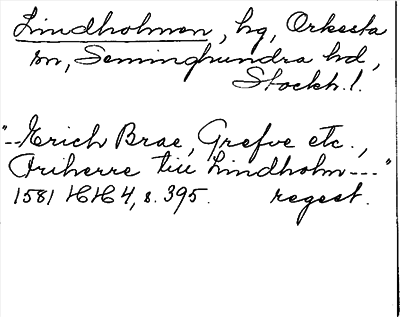 Lindholmen, hg, Orkesta
sn, Seminghundra hd,
Stockh. l.
"--Erich Brae, Grefve etc.,
Friherre till Lindholm---"
1581 HH4, s. 395. regest.